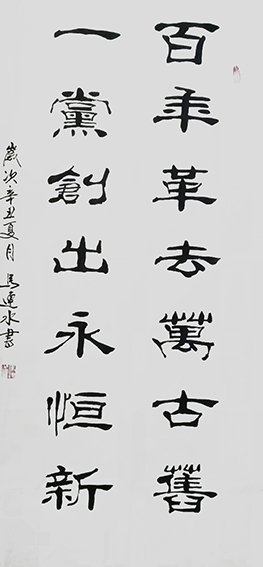 百年革去萬古舊
一黨創出永恒新
歲次辛丑夏月 馬連水書